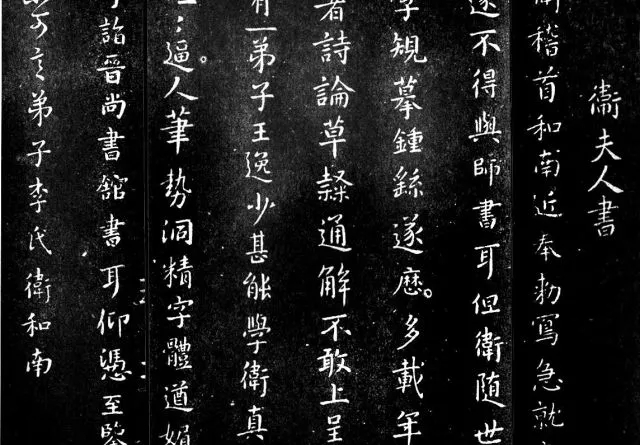 衛夫人書
稽首和南近奉勅寫急就
遂不得與師書耳但衛隨世
學規摹鍾繇遂歷多載年
著詩論草隸通解不敢上呈
有一弟子王逸少甚能學衛真
逼人筆勢洞精字體遒媚
詣晉尚書舘書耳仰憑至鑒
可言弟子李氏衛和南